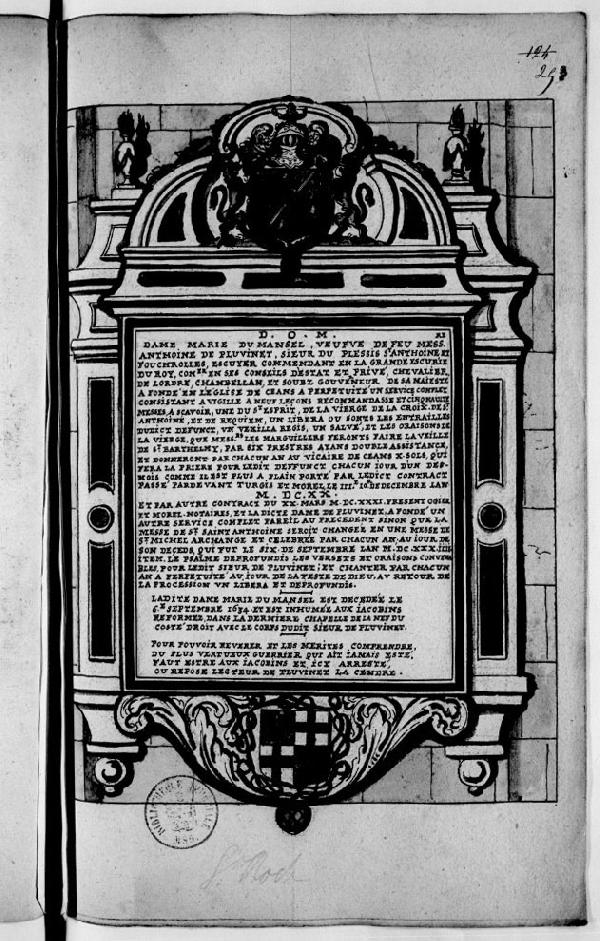 124
293
D. O. M.
XI
DAME MARIE DU MANSEL, VEUFVE DE FEU MESS.
ANTHOINE DE PLUVINET, SIEUR DU PLESSIS St. ANTHOINE ET
FOUCHROLIES, ESCUYER COMMENDANT EN LA GRANDE ESCURIE
DU ROY, CONer. EN SES CONSEILS DESTAT ET PRIVÉ, CHEVALIER,
DE LORDRE, CHAMBELLAN, ET SOUBZ GOUVERNEUR DE SA MAIESTÉ
A FONDÉ EN LEGLISE DE CEANS A PERPETUITÉ UN SERVICE COMPLET
CONSISTANT A VIGILLE A NEUF LEÇONS RECOMMANDASSE ET CINQ HAULTE
MESSES, A SCAVOIR, UNE DU St. ESPRIT, DE LA VIERGE DE LA CROIX, DE St.
ANTHOINE, ET DE REQUIEM, UN LIBERA OU SONTS LES ENTRAILLES
DUDICT DEFUNCT, UN VEXILLA REGIS, UN SALVE, ET LES ORAISONS DE
LA VIERGE, QUE MESS.rs LES MARGUILLERS FERONTS FAIRE LA VEILLE
DE St. BARTHELMY, PAR SIX PRESTRES AYANS DOUBLE ASSISTANCE,
ET DONNERONT PAR CHACUN AN AU VICAIRE DE CEANS X. SOLS, QUI
FERA LA PRIERE POUR LEDIT DEFFUNCT CHACUN IOUR D'UN DES
MOIS COMME IL EST PLUS A PLAIN PORTÉ PAR LEDICT CONTRACT
PASSÉ PARDEVANT TURGIS ET MORELLE IIII.e Io. DE DECEMBRE LAN
M. DC. XX.
ET PAR AUTRE CONTRACT DU XX. MARS M. DC. XXXI. PRESENT
ET MOREL NOTAIRES, ET LADICTE DAME DE PLUVINET, A FONDÉ UN
AUTRE SERVICE COMPLET PAREIL AU PRECEDENT SINON QUE LA
MESSE DE St. SAINT ANTHOINE SEROIT CHANGEE EN UNE MESSE DE
St. MICHEL ARCHANGE ET CELEBRÉE PAR CHACUN AN AU IOUR DE
SON DECEDS QUI FUT LE SIX DE SEPTEMBRE LAN M. DC. XXX. IIII
ITEM. LE PSALME DE PROFUNDIS LES VERSETS ET ORAISONS CONVENA
BLES, POUR LEDIT SIEUR DE PLUVINET; ET CHANTER PAR CHACUN
AN A PERPETUITÉ AU IOUR DE LA FESTE DE DIEU, AU RETOUR DE
LA PROCESSION UN LIBERA ET DE PROFUNDIS.
LADITE DAME MARIE DU MANSEL EST DECEDÉE LE
6.e SEPTEMBRE 1634 ET EST INHUMÉE AUX IACOBINS
REFORMEZ, DANS LA DERNIERE CHAPELLE DE LA NEF DU
COSTÉ DROIT AVEC LE CORPS DUDIT SIEUR DE PLUVINET.
POUR POUVOIR REVERIR ET LES MERITES COMPRENDRE,
DU PLUS VERTUEUX GUERRIER QUI AIT IAMAIS ESTÉ,
FAUT ESTRE AUX IACOBINS ET ICY ARRESTÉ,
OU REPOSE LECTEUR DE PLUVINET LA CENDRE.
St. Roch